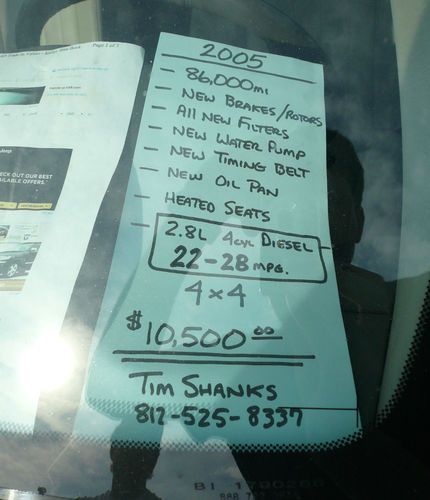 Page 1 of 3
2005
- 86,000mi
- NEW BRAKES/ROTORS
- All NEW FILTERS
- NEW WATER PUMP
- NEW TIMING BELT
- NEW OIL PAN
- HEATED SEATS
- 2.8L 4cyl DIESEL
22-28 MPG.
4x4
$10,500 00
TIM SHANKS
812-525-8337
Jeep
CK OUT OUR BEST
AILABLE OFFERS.